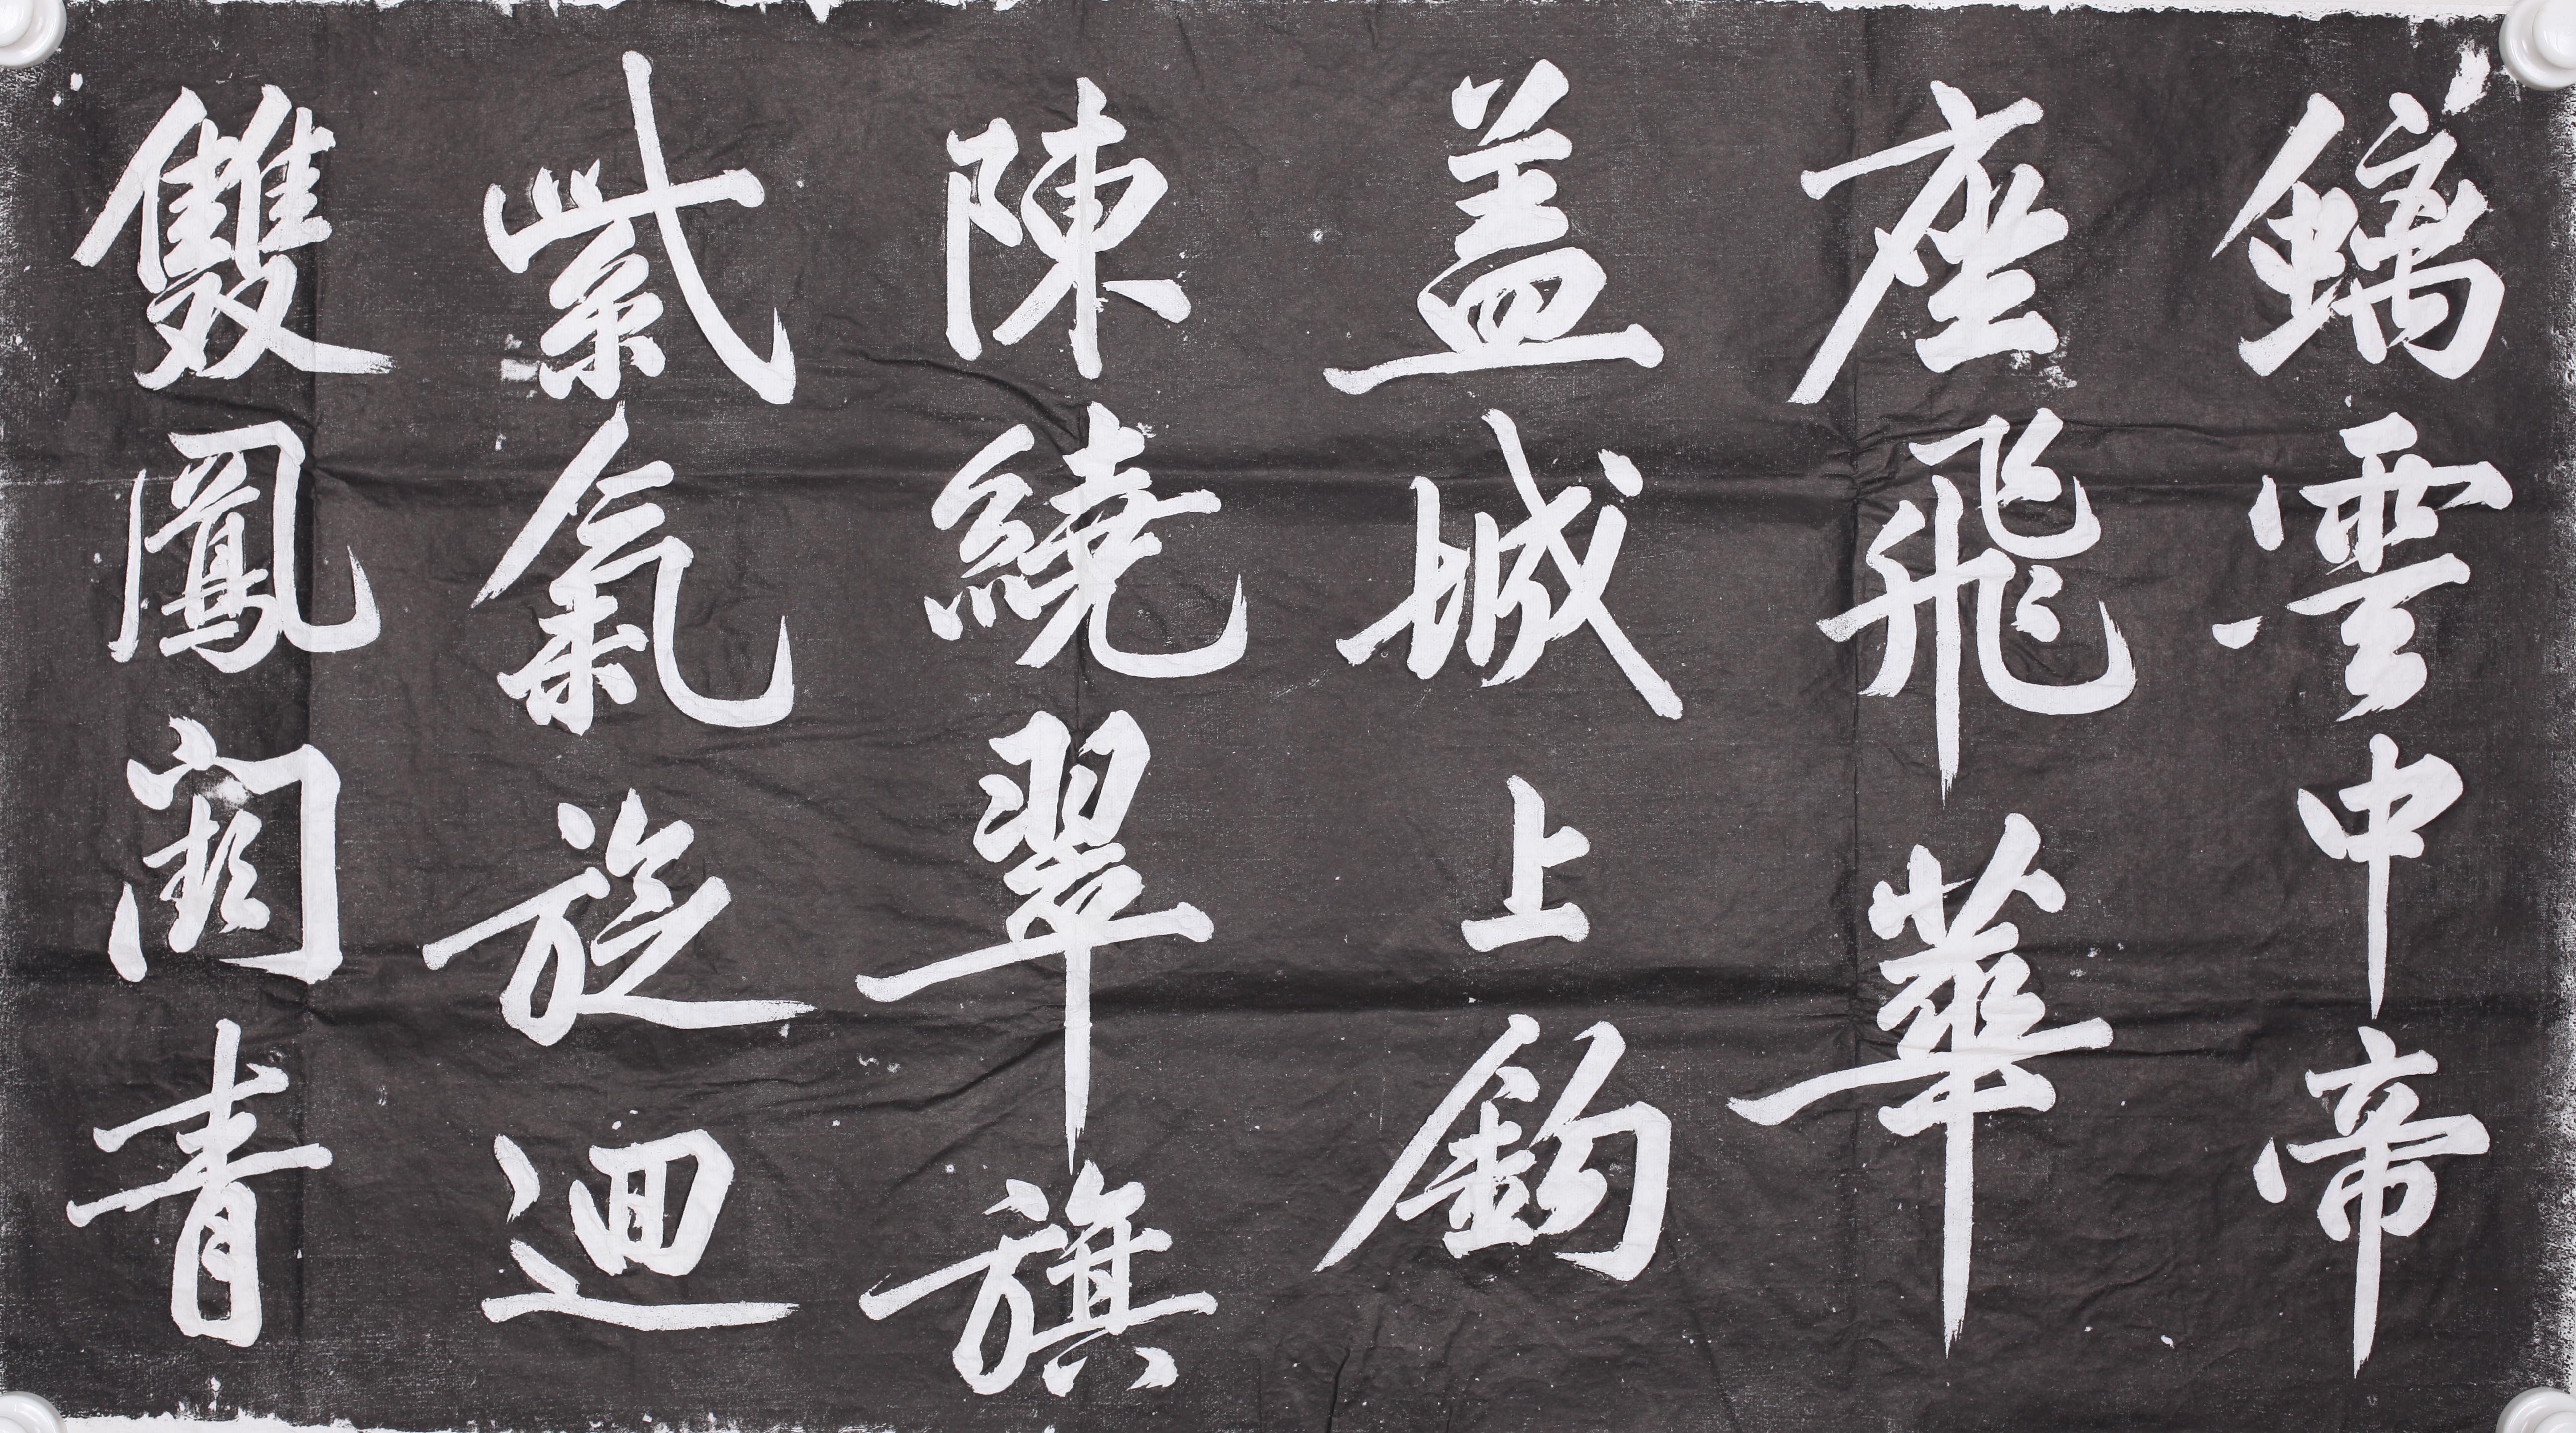 螭雲中帝
座飛華
盖城上鉤
陳繞翠旗
紫氣旋迴
雙鳳闕青